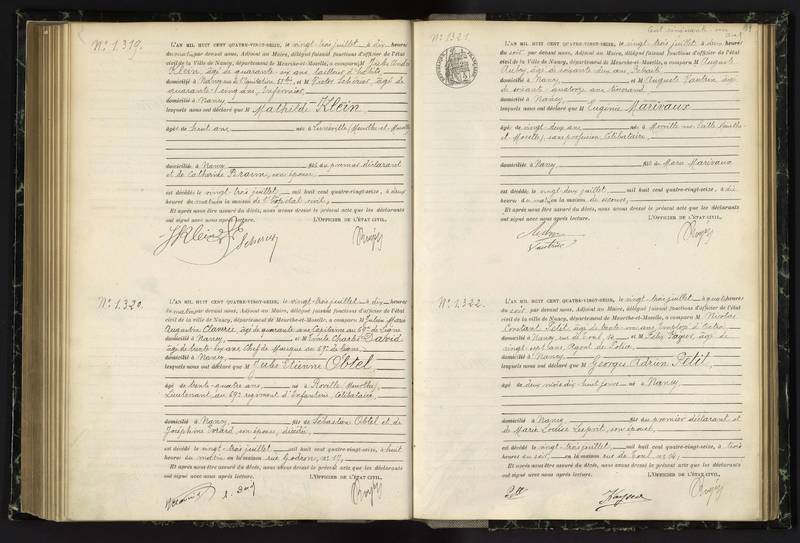 N° 1.319.
L'AN MIL HUIT CENT QUATRE-VINGT-SEIZE, le vingt-trois juillet à dix heures
du matin par devant nous, Adjoint au Maire, délégué faisant fonctions d'officier de l'état
civil de la Ville de Nancy, département de Meurthe-et-Moselle, a comparu M Jules André
Klein, âgé de quarante-six ans, tailleur d'habits,
domicilié à Nancy, et M Victor Scherier, âgé de
quarante-cinq ans, Infirmier,
domicilié à Nancy,
lesquels nous ont déclaré que M Mathilde Klein
âgée de huit ans née à Lunéville (Meurthe-et-Moselle)
domiciliée à Nancy fille du premier déclarant
et de Catherine son épouse,
est décédée le vingt-trois juillet mil huit cent quatre-vingt-seize, à deux
heures du matin en la maison de l'hôpital civil,
Et après nous être assuré du décès, nous avons dressé le présent acte que les déclarants
ont signé avec nous après lecture. L'OFFICIER DE L'ÉTAT CIVIL,
J Klein
N° 1.320.
L'AN MIL HUIT CENT QUATRE-VINGT-SEIZE, le vingt-trois juillet à dix heures
du matin par devant nous, Adjoint au Maire, délégué faisant fonctions d'officier de l'état
civil de la Ville de Nancy, département de Meurthe-et-Moselle, a comparu M Julien Marie
Augustin âgé de quarante ans, Capitaine au 69me de ligne
domicilié à Nancy, et M Emile Charles David
âgé de trente-six ans, Chef de Musique au 69me de ligne
domicilié à Nancy,
lesquels nous ont déclaré que M Jules Etienne Obtel
âgé de trente-quatre ans né à Roville (Meurthe),
Lieutenant au 69e régiment d'Infanterie, célibataire,
domicilié à Nancy fils de Sébastien Obtel et de
Joséphine son épouse, décédée,
est décédé le vingt-trois juillet mil huit cent quatre-vingt-seize, à huit
heures du matin en la maison rue Godron, no 17,
Et après nous être assuré du décès, nous avons dressé le présent acte que les déclarants
ont signé avec nous après lecture. L'OFFICIER DE L'ÉTAT CIVIL,
N° 1.321.
L'AN MIL HUIT CENT QUATRE-VINGT-SEIZE, le vingt-trois juillet à deux heures
du soir par devant nous, Adjoint au Maire, délégué faisant fonctions d'officier de l'état
civil de la Ville de Nancy, département de Meurthe-et-Moselle, a comparu M Auguste
Aubry, âgé de soixante-deux ans,
domicilié à Nancy et M Auguste Vautrin, âgé
de soixante-quatorze ans,
domicilié à Nancy,
lesquels nous ont déclaré que M Eugénie Marivaux
âgée de vingt-deux ans née à Morville-sur-Seille (Meurthe-
et-Moselle), sans profession, célibataire,
domiciliée à Nancy fille de Marie Marivaux
est décédée le vingt-deux juillet mil huit cent quatre-vingt-seize, à dix
heures du matin en la maison de secours,
Et après nous être assuré du décès, nous avons dressé le présent acte que les déclarants
ont signé avec nous après lecture. L'OFFICIER DE L'ÉTAT CIVIL,
Vautrin
N° 1.322.
L'AN MIL HUIT CENT QUATRE-VINGT-SEIZE, le vingt-trois juillet à quatre heures
du soir par devant nous, Adjoint au Maire, délégué faisant fonctions d'officier de l'état
civil de la Ville de Nancy, département de Meurthe-et-Moselle, a comparu M Nicolas
Constant Petit, âgé de trente-un ans, Employé d'octroi,
domicilié à Nancy, rue de Toul, et M Félix âgé de
vingt-sept ans, Agent de Police,
domicilié à Nancy
lesquels nous ont déclaré que M Georges Adrien Petit
âgé de deux mois dix-huit jours né à Nancy
domicilié à Nancy fils du premier déclarant et
de Marie Louise son épouse,
est décédé le vingt-trois juillet mil huit cent quatre-vingt-seize, à trois
heures du soir, en la maison rue de Toul,
Et après nous être assuré du décès, nous avons dressé le présent acte que les déclarants
ont signé avec nous après lecture. L'OFFICIER DE L'ÉTAT CIVIL,